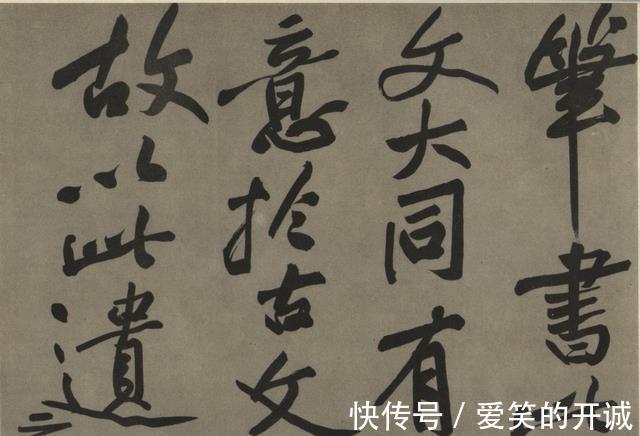 筆書
文大同有
意於古文
故以此遺
快传号 / 爱笑的开诚